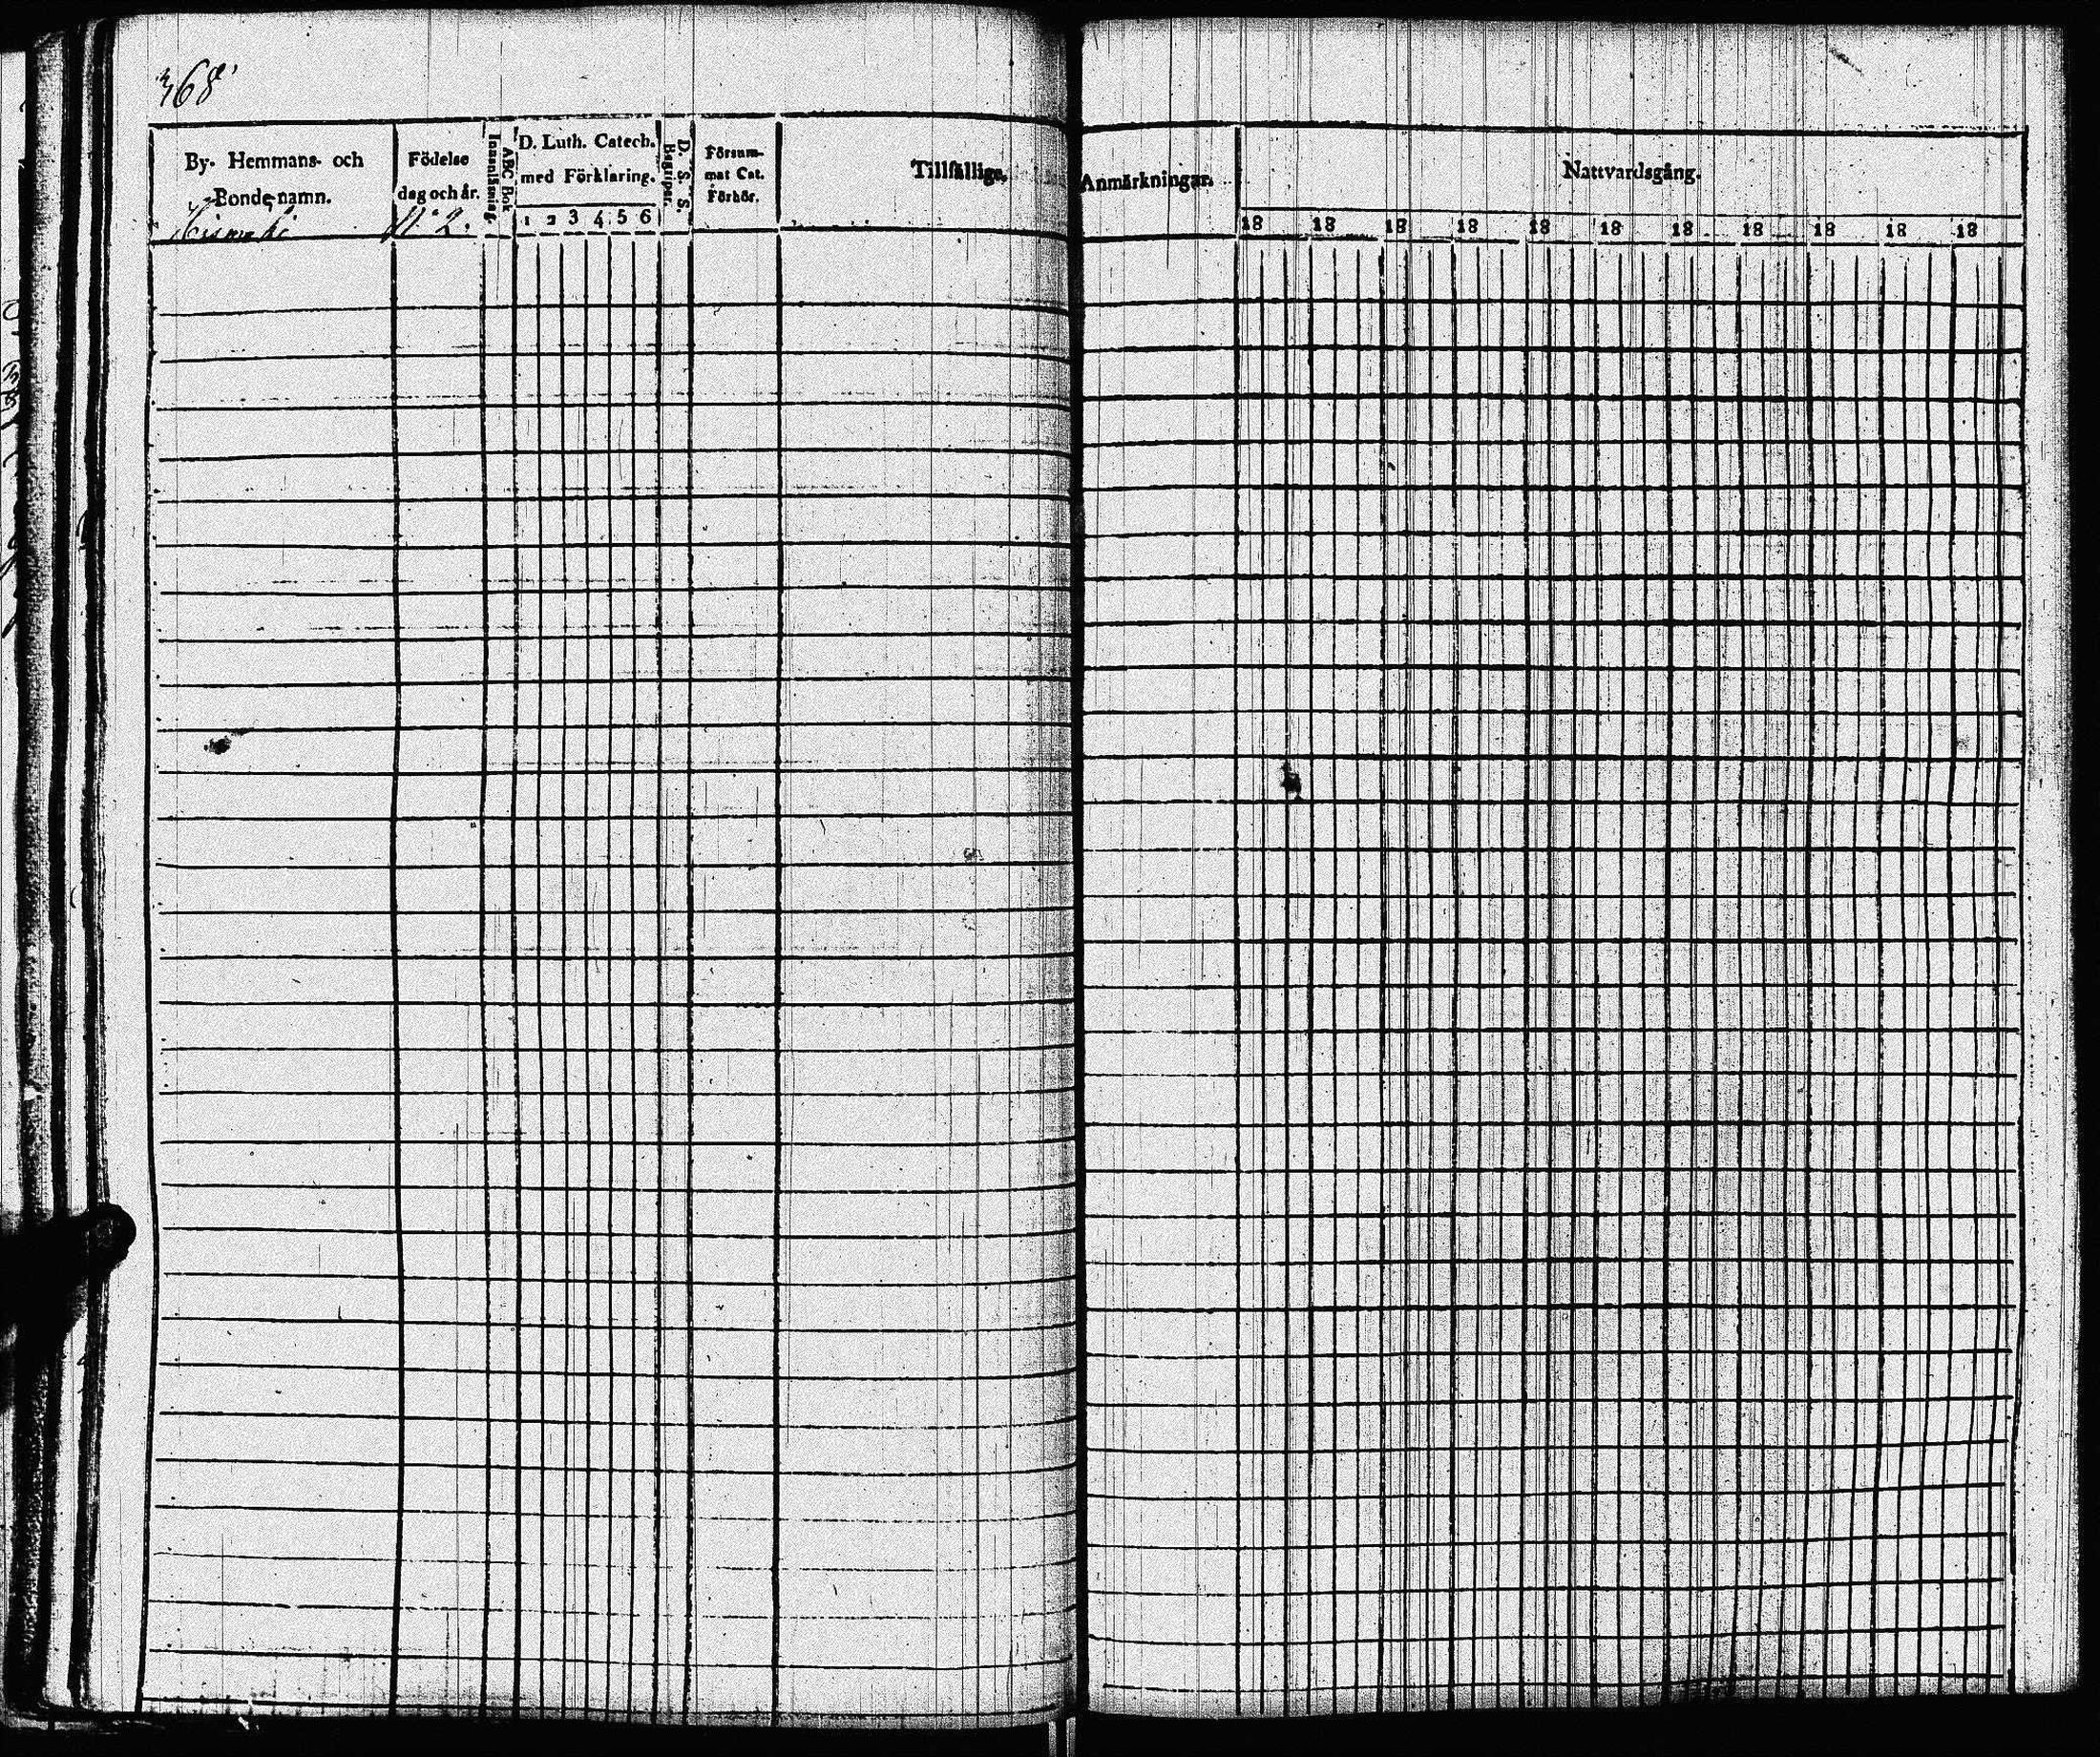 368
By- Hemmans- och
Bondenamn.
Födelse
dag och år.
N:o 2.
Innanläsning.
ABC Bok
D. Luth. Catech.
med Förklaring.
1 2 3 4 5 6
D. S. S.
Begriper.
Försum-
mat Cat.
Förhör.
Tillfällige
Anmärkningar.
Nattvardsgång.
18 18 18 18 18 18 18 18 18 18 18